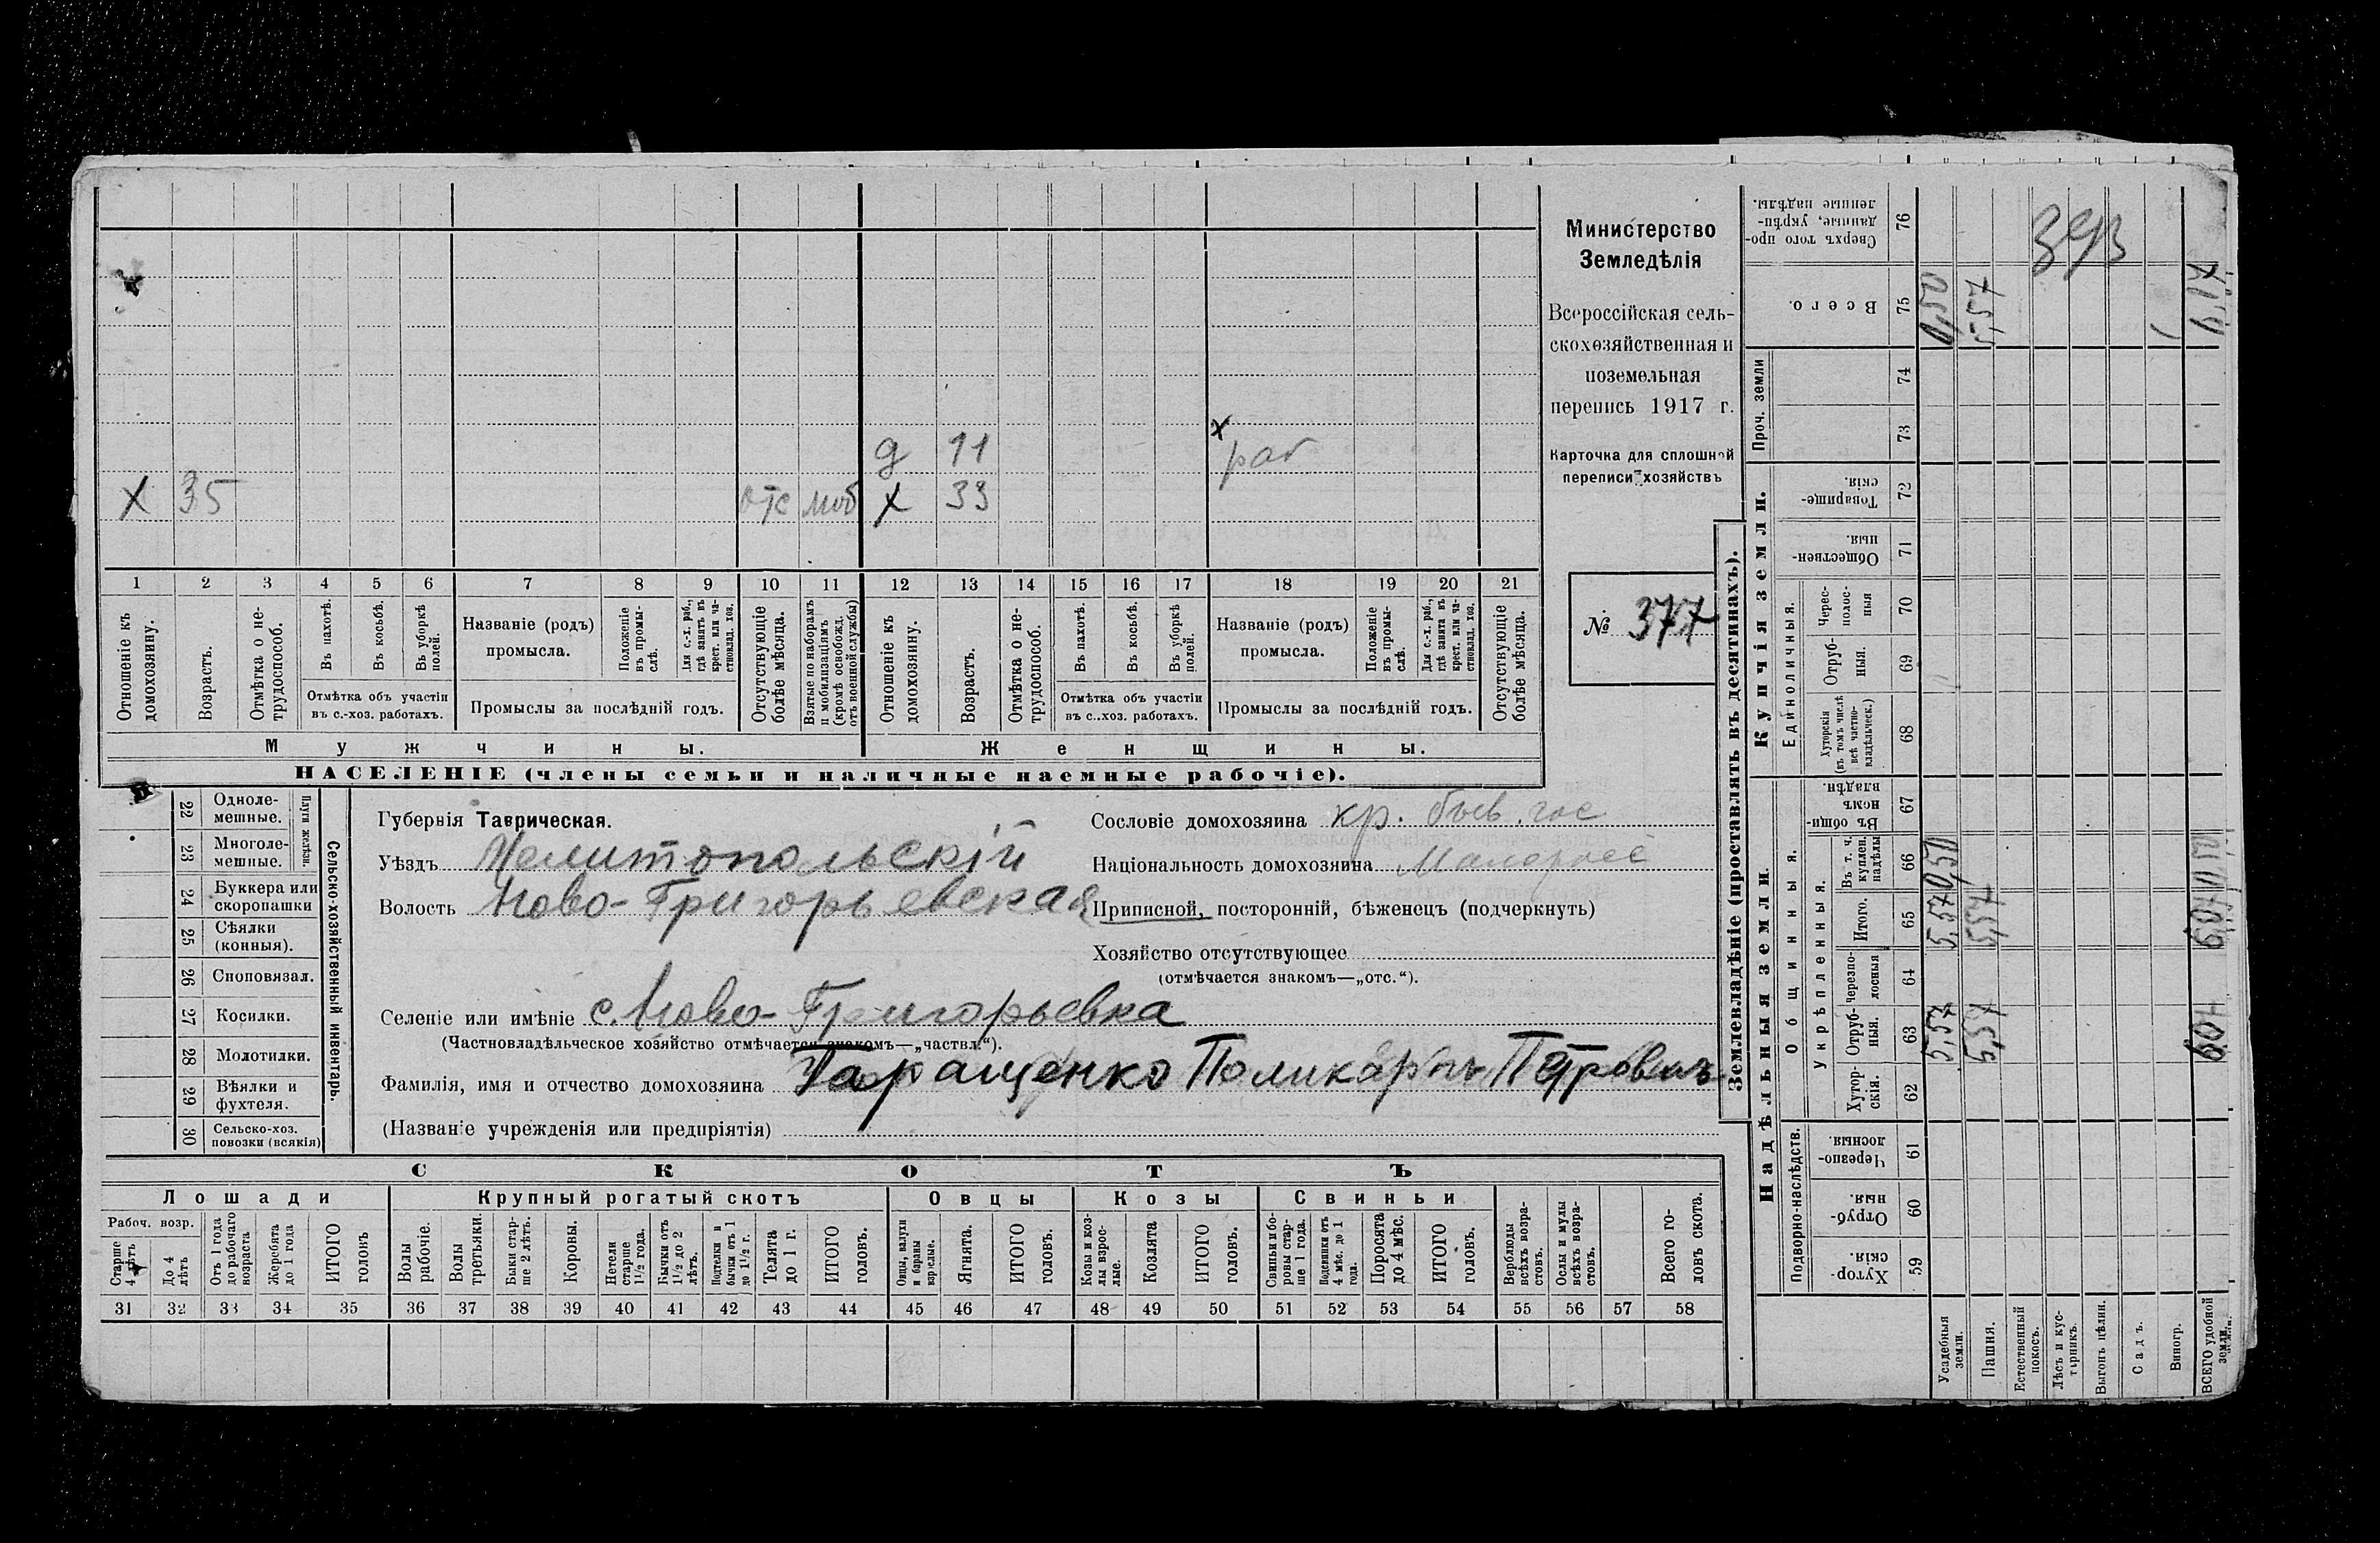 Министерство
Земледѣлія
Всероссійская сель-
скохозяйственная и
поземельная
перепись 1917 г.
Карточка для сплошной
переписи хозяйствъ
№ 377
д 11 раб
х 35 отс моб х 33
1 2 3 4 5 6 7 8 9 10 11 12 13 14 15 16 17 18 19 20 21
Отношеніе къ домохозяину.
Возрастъ.
Отмѣтка о не-трудоспособ.
Въ пахотѣ.
Въ косьбѣ.
Въ уборкѣ полей.
Отмѣтка объ участіи въ с.-хоз. работахъ.
Названіе (родъ) промысла.
Положеніе въ промы-слѣ.
Для с.-х. раб., гдѣ занятъ въ крест. или ча-стновлад. хоз.
Промыслы за послѣдній годъ.
Отсутствующіе болѣе мѣсяца.
Взятые по наборамъ и мобилизаціямъ (кромѣ освобожд. отъ военной службы)
Отношеніе къ домохозяину.
Возрастъ.
Отмѣтка о не-трудоспособ.
Въ пахотѣ.
Въ косьбѣ.
Въ уборкѣ полей.
Отмѣтка объ участіи въ с.-хоз. работахъ.
Названіе (родъ) промысла.
Положеніе въ промы-слѣ.
Для с.-х. раб., гдѣ занята въ крест. или ча-стновлад. хоз.
Промыслы за послѣдній годъ.
Отсутствующіе болѣе мѣсяца.
Мужчины. Женщины.
НАСЕЛЕНІЕ (члены семьи и наличные наемные рабочіе).
22 Одноле-мешные.
23 Многоле-мешные.
Плуги желѣзн.
24 Буккера или скоропашки
25 Сѣялки (конныя).
26 Сноповязал.
27 Косилки.
28 Молотилки.
29 Вѣялки и фухтеля.
30 Сельско-хоз. повозки (всякія)
Сельско-хозяйственный инвентарь.
Губернія Таврическая.
Уѣздъ Мелитопольскій
Волость Ново-Григорьевская
Сословіе домохозяина кр. быв. гос
Національность домохозяина Малоросс
Приписной, посторонній, бѣженецъ (подчеркнуть)
Хозяйство отсутствующее
(отмѣчается знакомъ—„отс.“).
Селеніе или имѣніе с. Ново-Григорьевка
(Частновладѣльческое хозяйство отмѣчается знакомъ—„частвл.“).
Фамилія, имя и отчество домохозяина Таращенко Поликарпъ Петровичъ
(Названіе учрежденія или предпріятія)
СКОТЪ
Лошади Крупный рогатый скотъ Овцы Козы Свиньи
Рабоч. возр.
Старше 4 лѣтъ
До 4 лѣтъ
Отъ 1 года до рабочаго возраста
Жеребята до 1 года
ИТОГО головъ
Волы рабочіе.
Волы третьяки.
Быки стар-ше 2 лѣтъ.
Коровы.
Нетели старше 1½ года.
Бычки отъ 1½ до 2 лѣтъ.
Подтелки и бычки отъ 1 до 1½ г.
Телята до 1 г.
ИТОГО головъ.
Овцы, валухи и бараны взрослые.
Ягнята.
ИТОГО головъ.
Козы и коз-лы взрос-лые.
Козлята
ИТОГО головъ.
Свиньи и бо-ровы стар-ше 1 года.
Подсвинки отъ 4 мѣс. до 1 года.
Поросята до 4 мѣс.
ИТОГО головъ.
Верблюды всѣхъ возра-стовъ.
Ослы и мулы всѣхъ возра-стовъ.
Всего го-ловъ скота.
31 32 33 34 35 36 37 38 39 40 41 42 43 44 45 46 47 48 49 50 51 52 53 54 55 56 57 58
Землевладѣніе (проставлять въ десятинахъ).
Надѣльныя земли. Купчія земли. Проч. земли
Подворно-наслѣдств. Общинныя. Единоличныя.
Укрѣпленныя.
59 Хутор-скія.
60 Отруб-ныя.
61 Черезпо-лосныя.
62 Хутор-скія.
63 Отруб-ныя.
64 Черезпо-лосныя
65 Итого.
66 Въ т. ч. куплен. надѣлы
67 Въ общи-номъ владѣн.
68 Хуторскія (въ томъ числѣ всѣ частно-владѣльческ.)
69 Отруб-ныя.
70 Черес-полос-ныя
71 Обществен-ныя.
72 Товарище-скія.
73
74
75 Всего.
76 Сверхъ того про-данные, укрѣп-ленные надѣлы.
Усадебныя земли. 5,57 0,50 0,50
Пашня. 5,57 5,57 5,57
Естественный покосъ.
Лѣсъ и кус-тарникъ.
Выгонъ цѣлин.
Садъ.
Виногр.
ВСЕГО удобной земли.
393